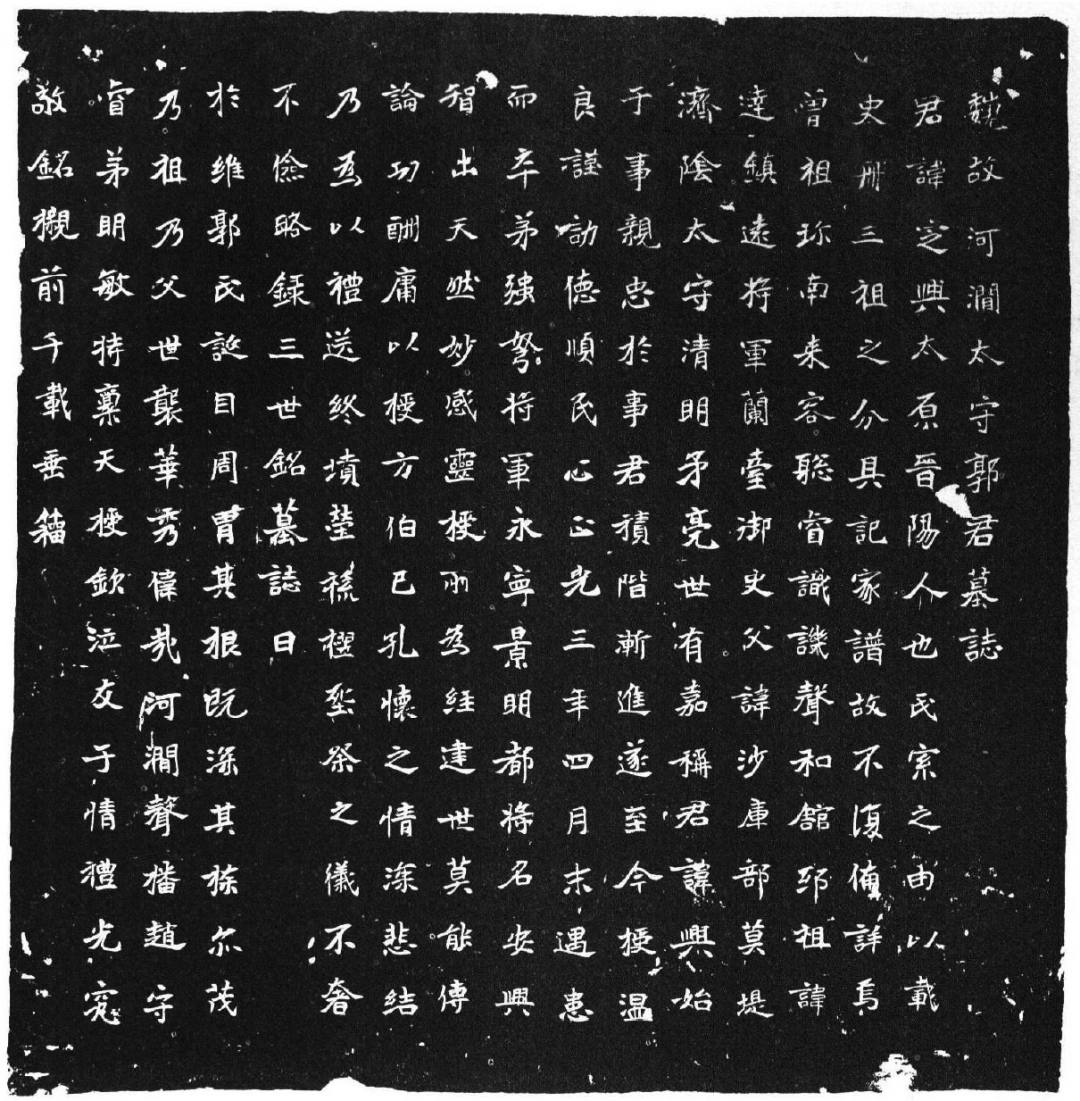 魏故河澗太守郭君墓誌
君諱定興太原晉陽人也氏宗之由以載
史冊三祖之分具記家譜故不復俻詳焉
曾祖珎南来客聡睿識譏聲和舘邳祖諱
達鎮遠将軍蘭臺御史父諱沙庫部莫堤
濟陰太守清明矛亮世有嘉稱君諱興始
于事親忠於事君積階漸進遂至今授温
良謹訥德順民心正光三年四月末遇患
而卒弟强弩将軍永寧景明都将名安興
智出天然妙感靈授所為経建世莫能傳
論功酬庸以授方伯已孔懷之情深悲結
乃為以禮送終墳塋襚櫬𡊮祭之儀不奢
不儉略録三世銘墓誌曰
於維郭氏誕自周胄其根既深其族尔茂
乃祖乃父世襲華秀偉哉河澗聲播趙守
睿弟明敏特稟天授欽泣友于情禮光究
敬銘櫬前千載垂籀